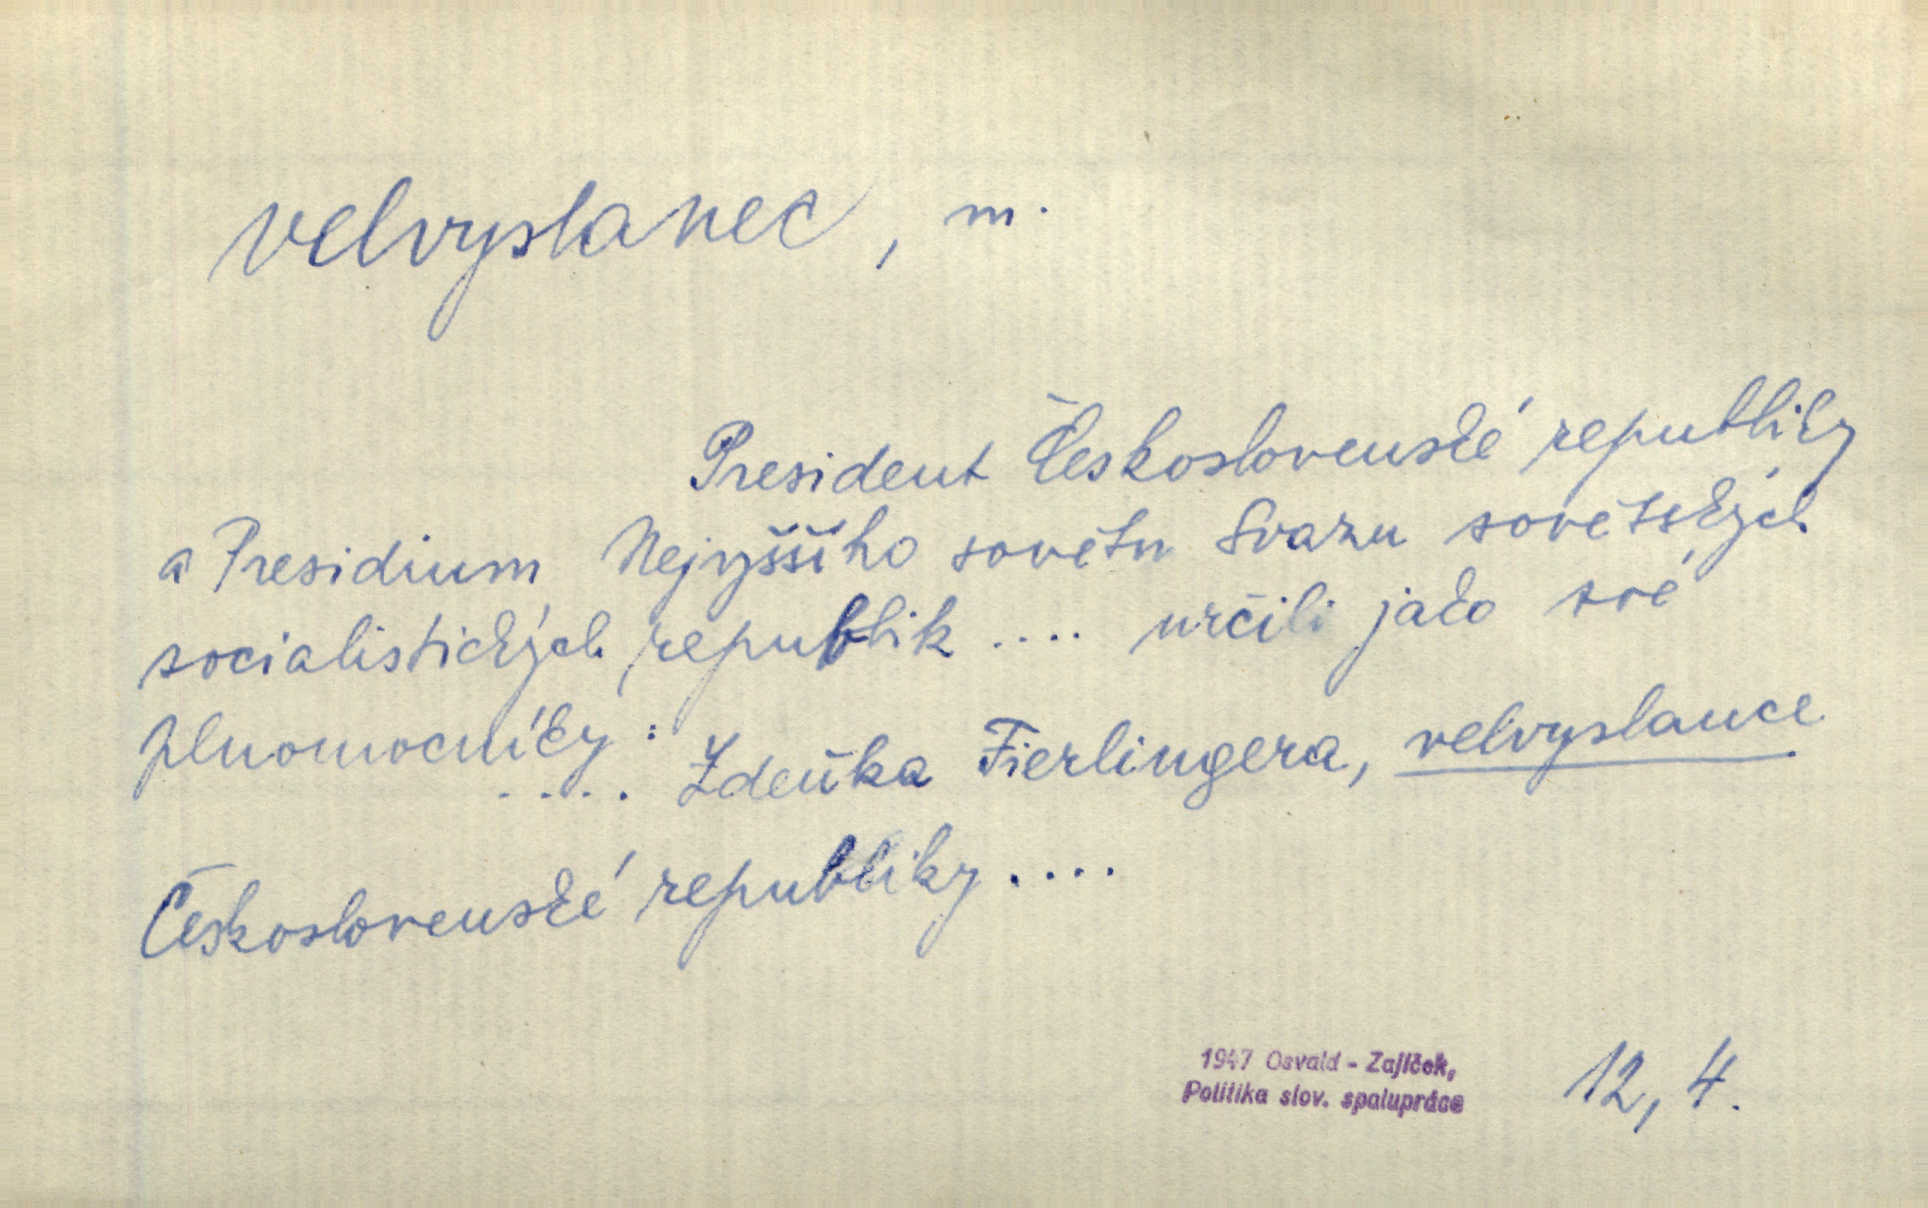 velvyslanec, m.
President Československé republiky
a Presidium Nejvyššího sovětu Svazu sovětských
socialistických republik .... určili jako své
plnomocníky:
..... Zdeňka Fierlingera, velvyslance
Československé republiky ....
1947 Osvald - Zajíček,
Politika slov. spolupráce
12, 4.